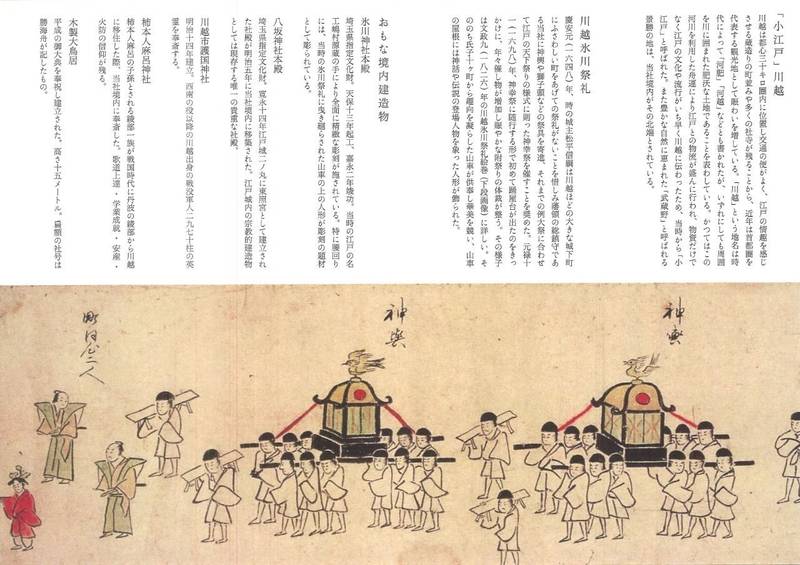 「小江戸」川越
川越は都心三十キロ圏内に位置し交通の便がよく、江戸の情趣を感じ
させる蔵造りの町並みや多くの社寺が残ることから、近年は首都圏を
代表する観光地として賑わいを増している。「川越」という地名は時
代によって「河肥」「河越」などとも書かれたが、いずれにしても周囲
を川に囲まれた肥沃な土地であることを表わしている。かつてはこの
河川を利用した舟運により江戸との物流が盛んに行われ、物資だけで
なく江戸の文化や流行がいち早く川越に伝わったため、当時から「小
江戸」と呼ばれた。また豊かな自然に恵まれた「武蔵野」と呼ばれる
景勝の地は、当社境内がその北端とされている。
川越氷川祭礼
慶安元(一六四八)年、時の城主松平信綱は川越ほどの大きな城下町
にふさわしい町をあげての祭礼がないことを惜しみ藩領の総鎮守であ
る当社に神輿や獅子頭などの祭具を寄進、それまでの例大祭に合わせ
て江戸の天下祭りの様式に則った神幸祭を催すことを奨めた。元禄十
一(一六九八)年、神幸祭に随行する形で初めて踊屋台が出たのをきっ
かけに、年々催し物が増加し賑やかな附祭りの体裁が整う。その様子
は文政九(一八二六)年の川越氷川祭礼絵巻(下段画像)に詳しい。そ
ののち氏子十ヶ町から趣向を凝らした山車が供奉し華美を競い、山車
の屋根には神話や伝説の登場人物を象った人形が飾られた。
おもな境内建造物
氷川神社本殿
埼玉県指定文化財。天保十三年起工、嘉永二年竣功。当時の江戸の名
工嶋村源蔵の手により全面に精緻な彫刻が施されている。特に腰回り
には、当時の氷川祭礼に曳き廻らされた山車の上の人形が彫刻の題材
として彫られている。
八坂神社本殿
埼玉県指定文化財。寛永十四年江戸城二ノ丸に東照宮として建立され
た社殿が明治五年に当社境内に移築された。江戸城内の宗教的建造物
としては現存する唯一の貴重な社殿。
川越市護国神社
明治十四年建立。西南の役以降の川越出身の戦役軍人二九七十柱の英
霊を奉斎する。
柿本人麻呂神社
柿本人麻呂の子孫とされる綾部一族が戦国時代に丹波の綾部から川越
に移住した際、当社境内に奉斎した。歌道上達・学業成就・安産・
火防の信仰が残る。
木製大鳥居
平成の御大典を奉祝し建立された。高さ十五メートル。扁額の社号は
勝海舟が記したもの。
神輿
神輿
二人